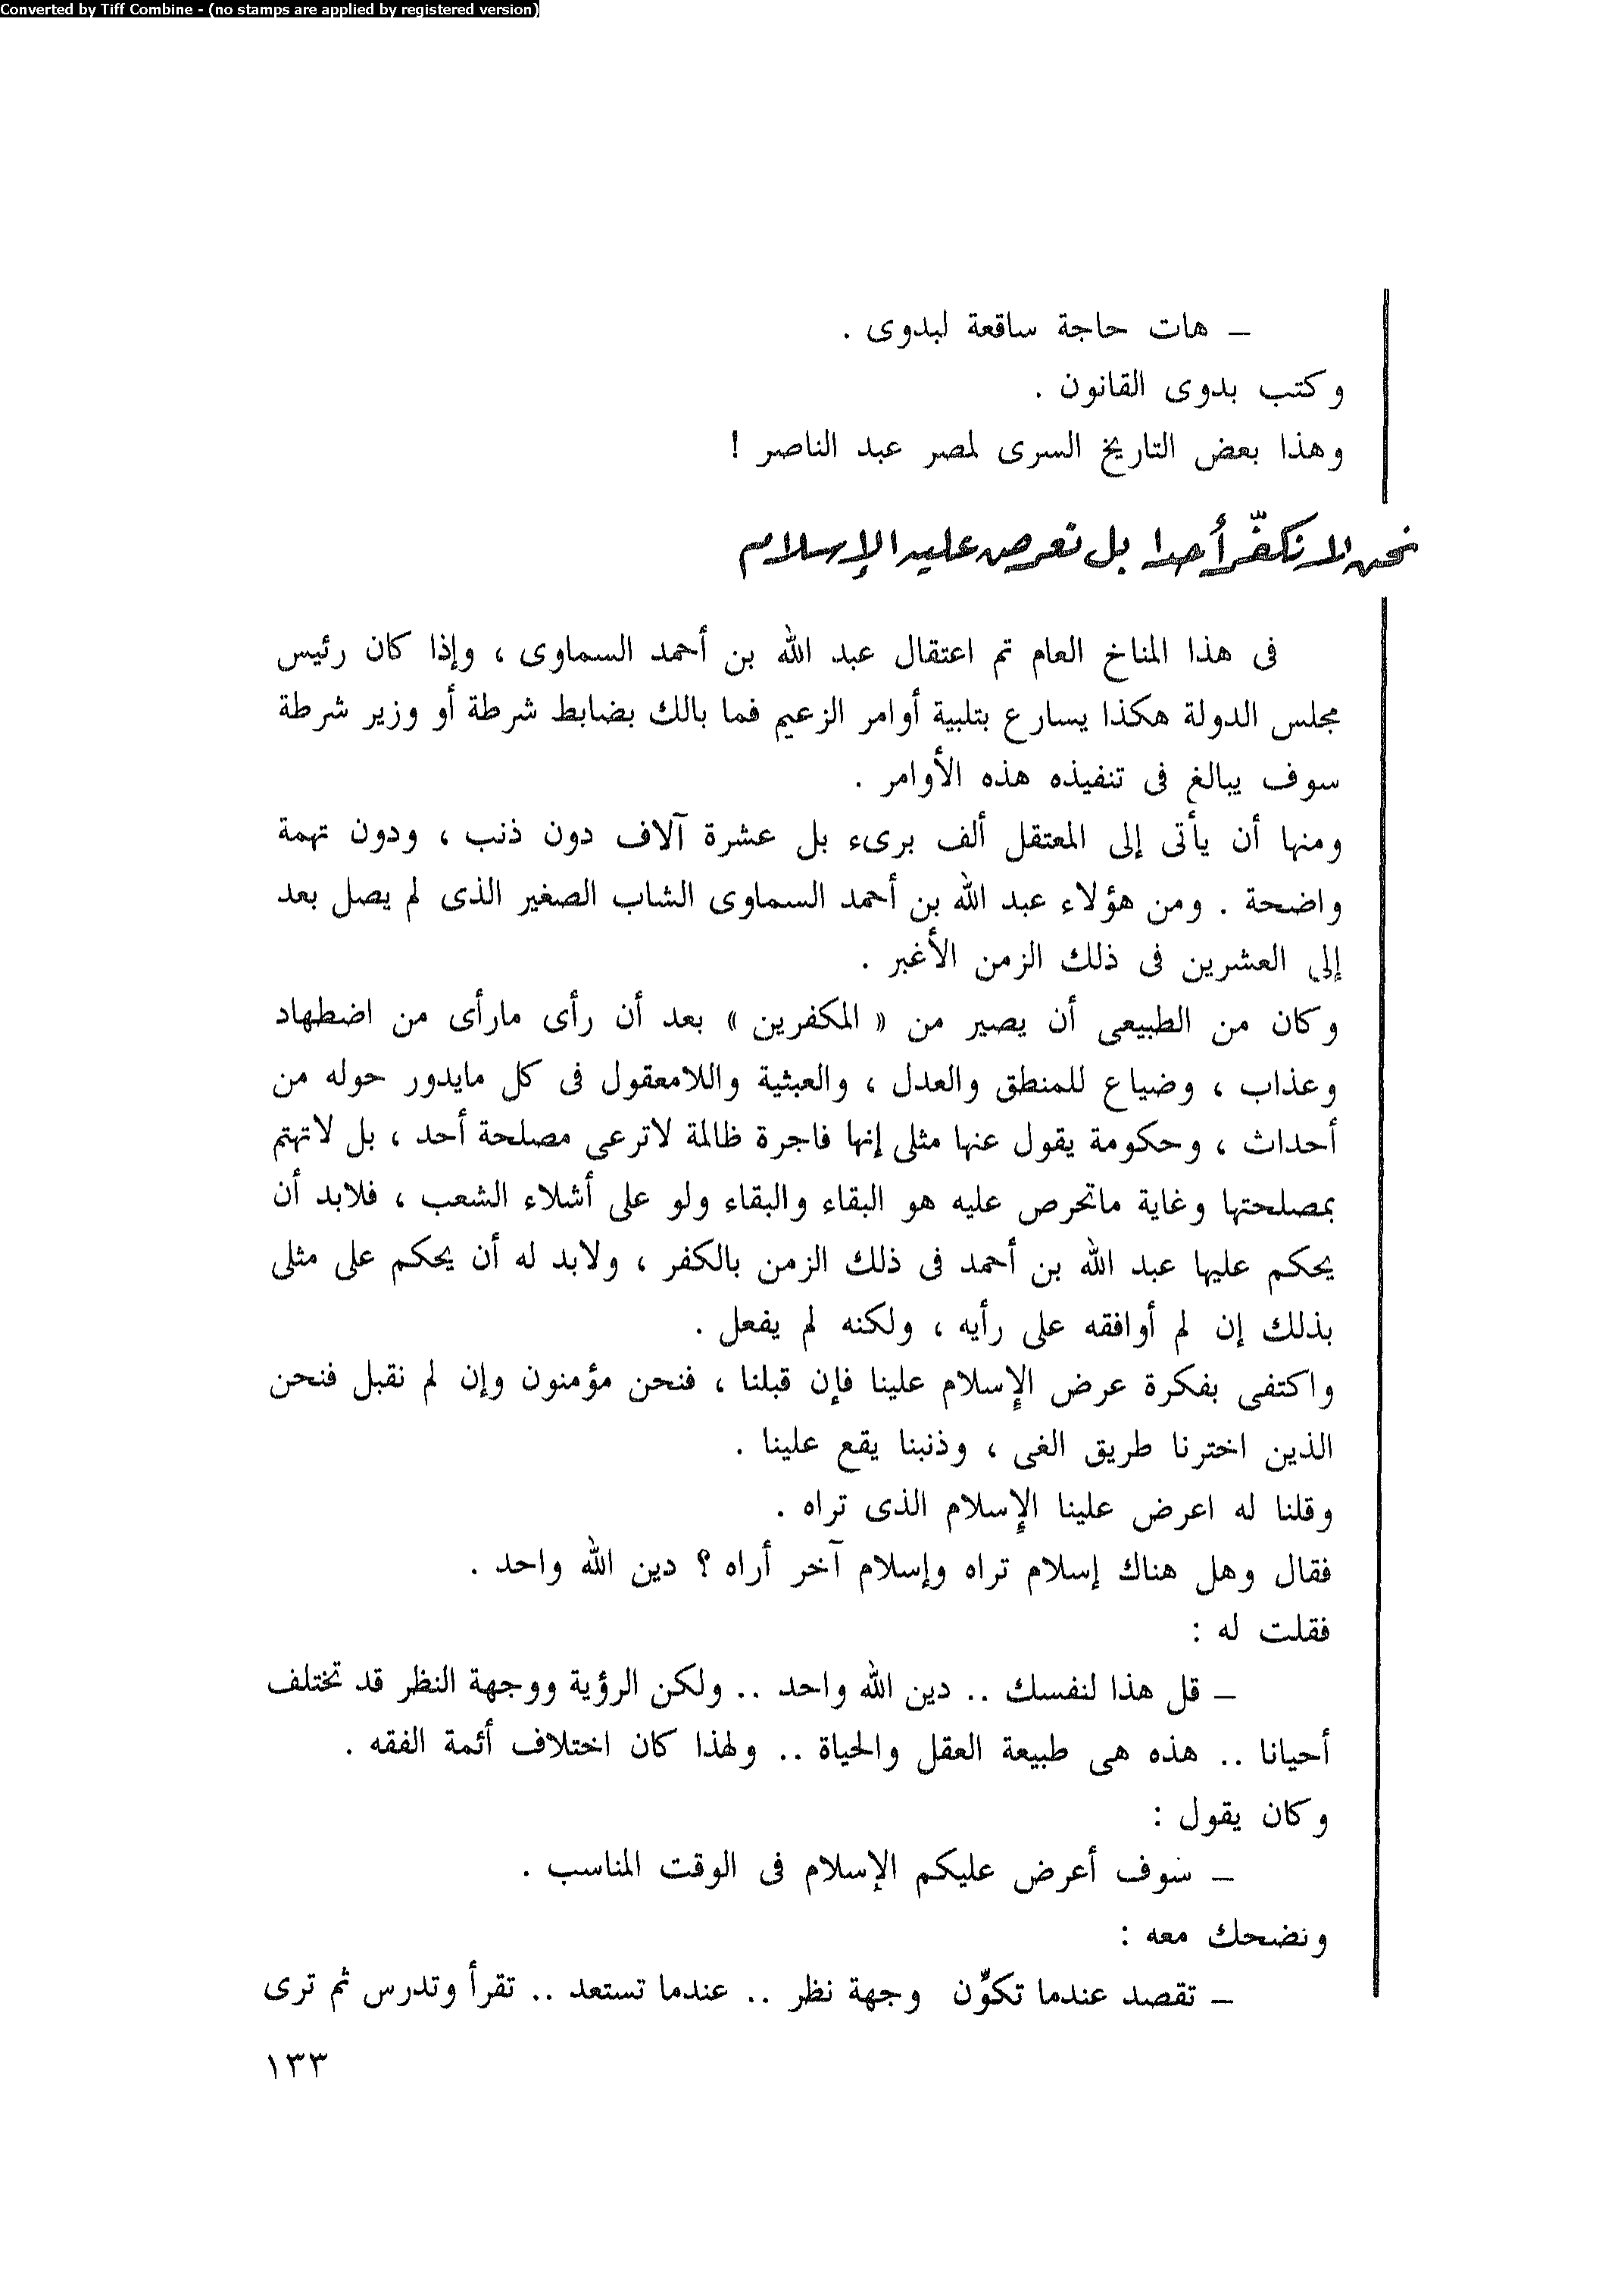 Converted by Tiff Combine - (no stamps are applied by registered version)
ـ هات حاجة ساقعة لبدوى .
وكتب بدوى القانون .
وهذا بعض التاريخ السرى لمصر عبد الناصر !
نحن لا نكفّر أحدا بل نعرض عليه الإسلام
فى هذا المناخ العام تم اعتقال عبد الله بن أحمد السماوى ، وإذا كان رئيس
مجلس الدولة هكذا يسارع بتلبية أوامر الزعيم فما بالك بضابط شرطة أو وزير شرطة
سوف يبالغ فى تنفيذه هذه الأوامر .
ومنها أن يأتى إلى المعتقل ألف برىء بل عشرة آلاف دون ذنب ، ودون تهمة
واضحة . ومن هؤلاء عبد الله بن أحمد السماوى الشاب الصغير الذى لم يصل بعد
إلى العشرين فى ذلك الزمن الأغبر .
وكان من الطبيعى أن يصير من « المكفرين » بعد أن رأى مارأى من اضطهاد
وعذاب ، وضياع للمنطق والعدل ، والعبثية واللامعقول فى كل مايدور حوله من
أحداث ، وحكومة يقول عنها مثلى إنها فاجرة ظالمة لاترعى مصلحة أحد ، بل لاتهتم
بمصلحتها وغاية ماتحرص عليه هو البقاء والبقاء ولو على أشلاء الشعب ، فلابد أن
يحكم عليها عبد الله بن أحمد فى ذلك الزمن بالكفر ، ولابد له أن يحكم على مثلى
بذلك إن لم أوافقه على رأيه ، ولكنه لم يفعل .
واكتفى بفكرة عرض الإسلام علينا فإن قبلنا ، فنحن مؤمنون وإن لم نقبل فنحن
الذين اخترنا طريق الغى ، وذنبنا يقع علينا .
وقلنا له اعرض علينا الإسلام الذى تراه .
فقال وهل هناك إسلام تراه وإسلام آخر أراه ؟ دين الله واحد .
فقلت له :
ـ قل هذا لنفسك .. دين الله واحد .. ولكن الرؤية ووجهة النظر قد تختلف
أحيانا .. هذه هى طبيعة العقل والحياة .. ولهذا كان اختلاف أئمة الفقه .
وكان يقول :
ـ سوف أعرض عليكم الإسلام فى الوقت المناسب .
ونضحك معه :
ـ تقصد عندما تكوِّن وجهة نظر .. عندما تستعد .. تقرأ وتدرس ثم ترى
١٣٣